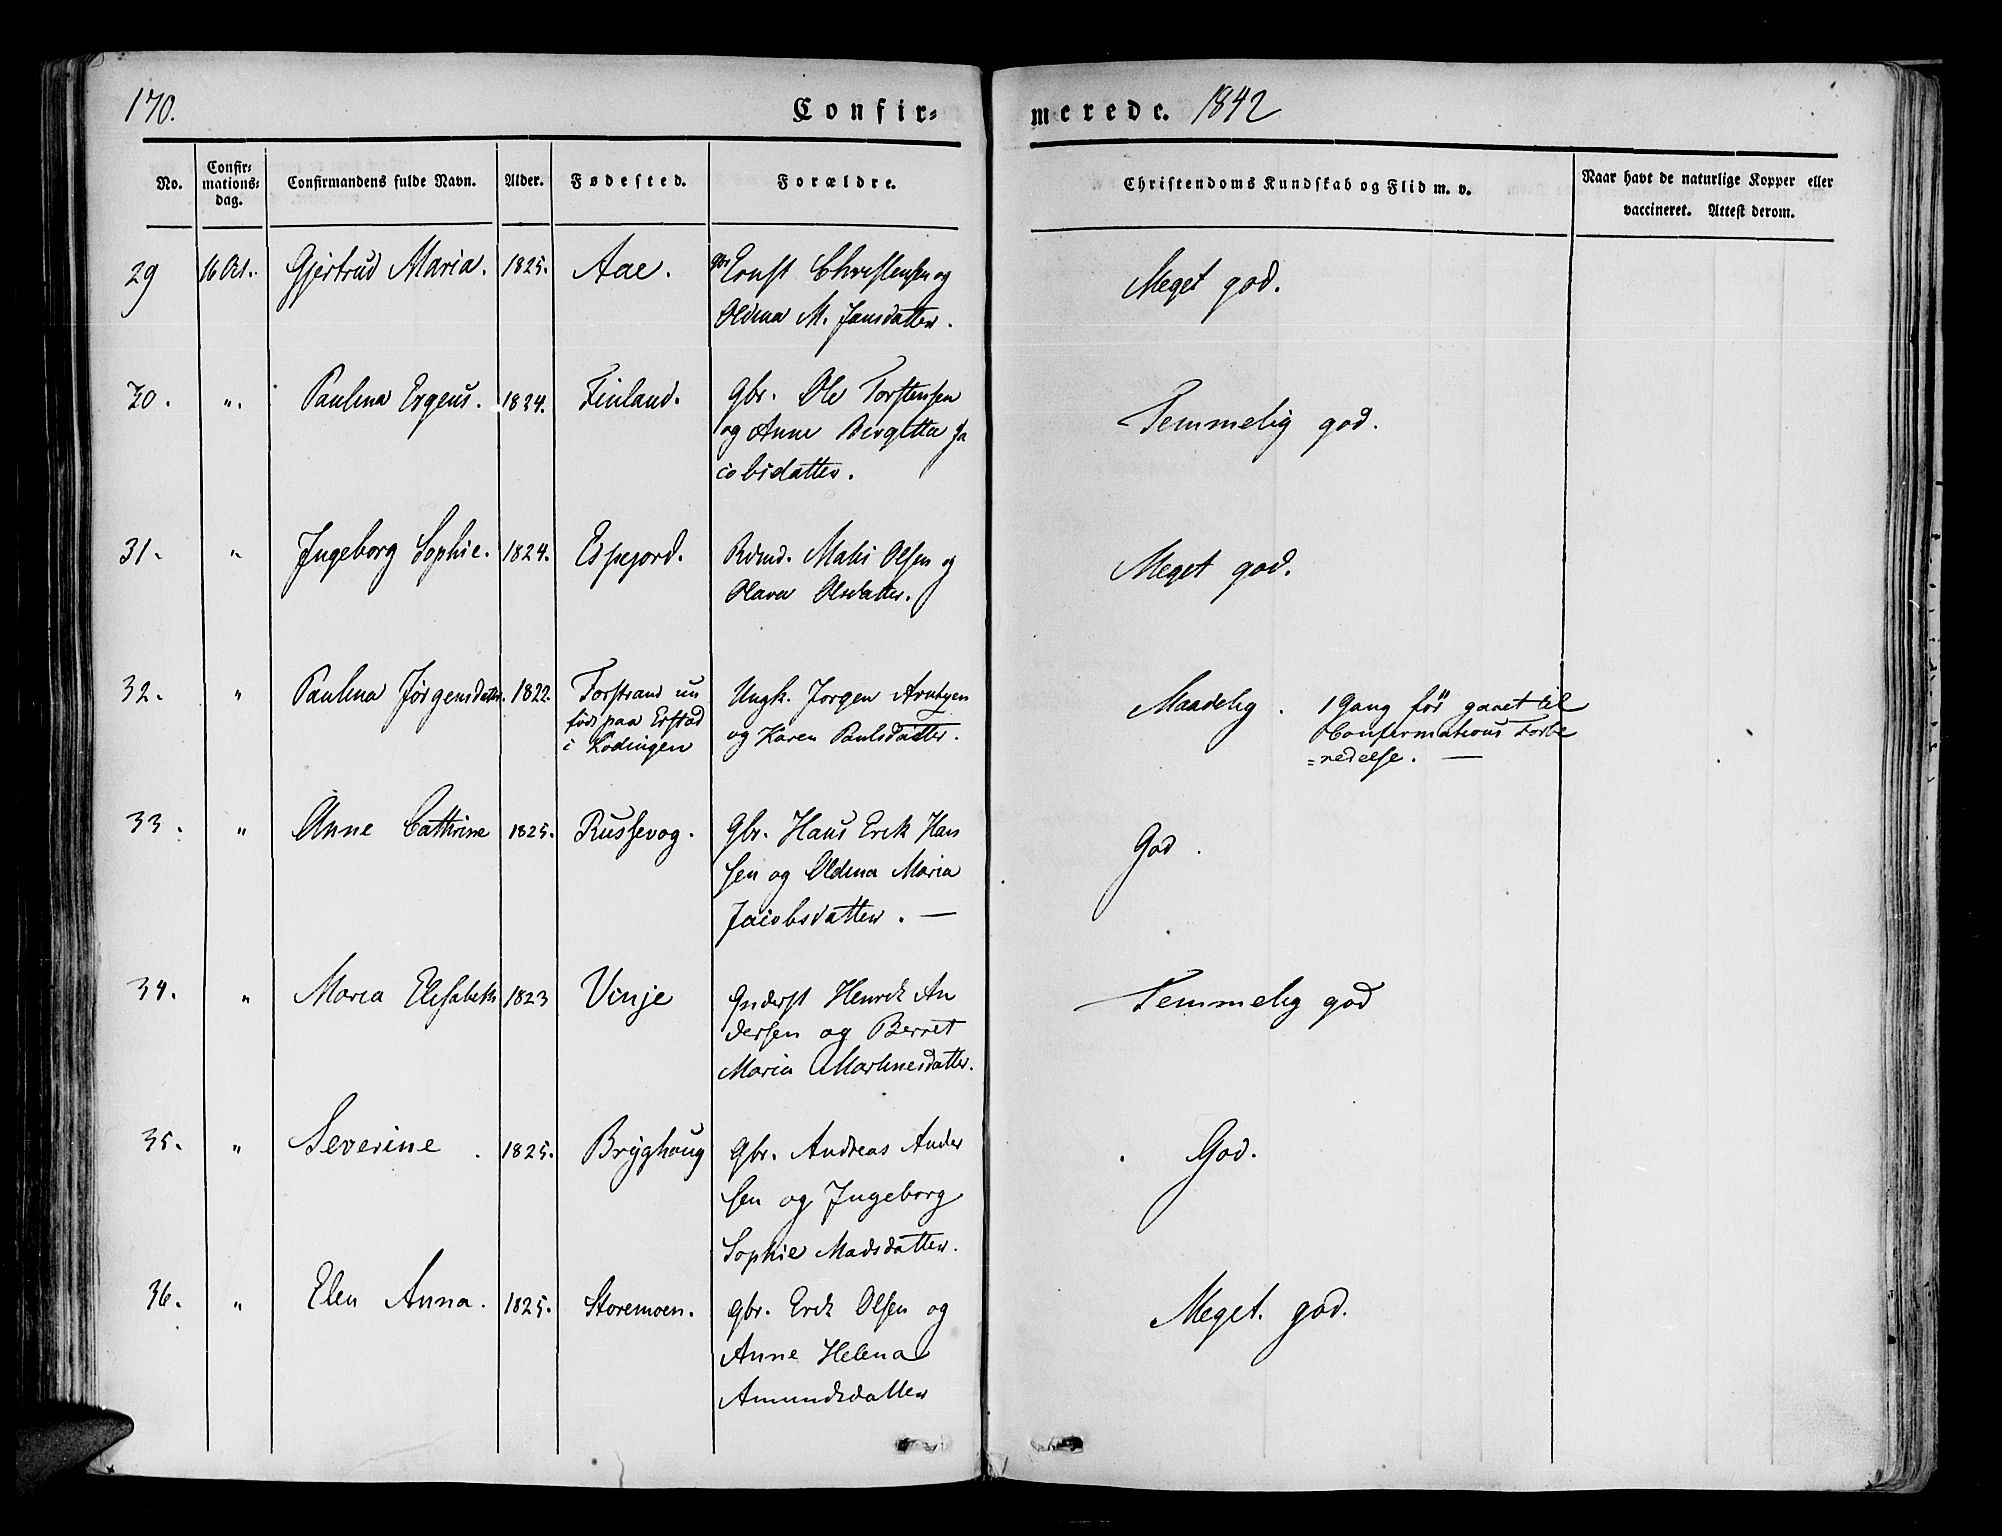 170.
Confir=
merede. 1842
No.
Confir=
mations=
dag.
Confirmandens fulde Navn.
Alder.
Fødested.
Forældre.
Christendoms Kundskab og Flid m. v.
Naar havt de naturlige Kopper eller
vaccineret. Attest derom.
29 16 Oct. Gjertrud Maria. 1825. Aae. Gbr Ernst Christensen og
Oldina M. Jansdatter.
Meget god.
30. ". Paulina 1824. Finland. Gbr. Ole Torstensen
og Anne Birgitta Ja
cobsdatter.
Temmelig god.
31. " Ingeborg Sophie. 1824. Espejord. Rdmd. Mathis Olsen og
Olava Olsdatter.
Meget god.
32. " Paulina Jørgensdatter. 1822. Forstrand nu
født paa Erstad
i Lødingen
Ungk. Jørgen Arntzen
og Karen Paulsdatter.
Maadelig. 1 Gang før gaaet til
Confirmations Forbe
=redelse. —
33. " Anne Cathrine 1825. Russevog. Gbr. Hans Erik Han
sen og Oldina Maria
Jacobsdatter. —
God.
34. " Maria Elisabeth 1823 Vinje Inderst Henrik An
dersen og Berret
Maria Martinesdatter.
Temmelig god
35. " Severine. 1825. Bryghaug Gbr. Andreas Ander
sen og Ingeborg
Sophie Madsdatter.
God.
36. " Elen Anna. 1825. Storemoen. Gbr. Erik Olsen og
Anne Helena
Amundsdatter
Meget god.